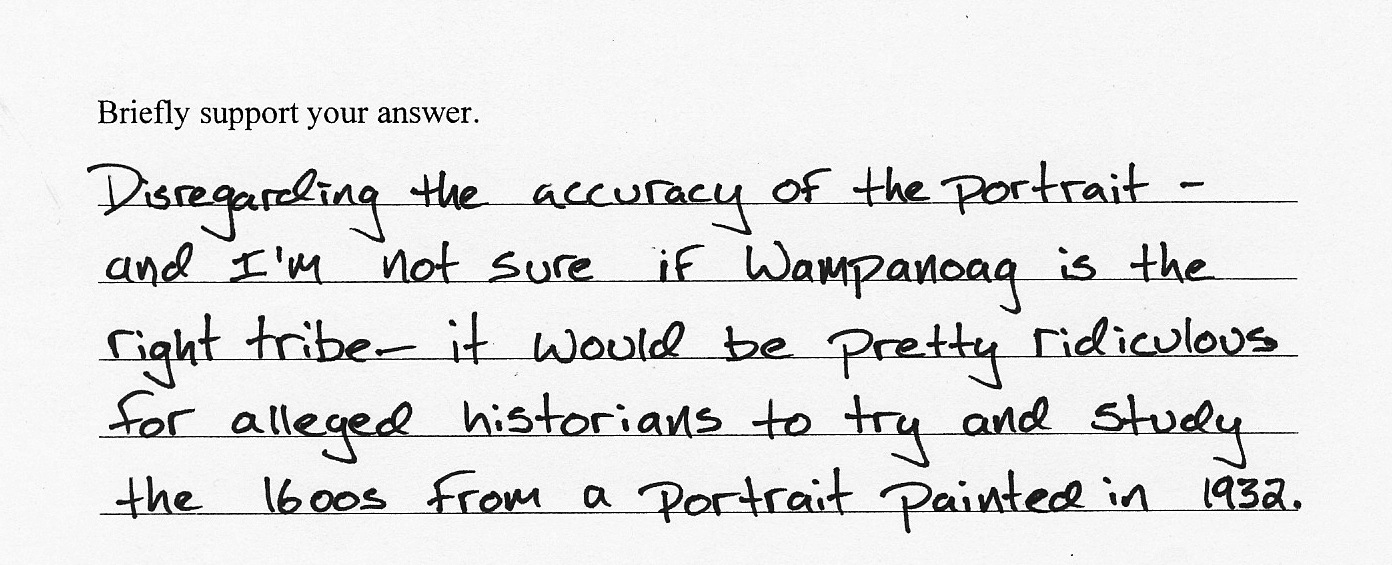 Briefly support your answer.
Disregarding the accuracy of the portrait -
and I'm not sure if Wampanoag is the
right tribe— it would be pretty ridiculous
for alleged historians to try and study
the 1600s from a portrait painted in 1932.